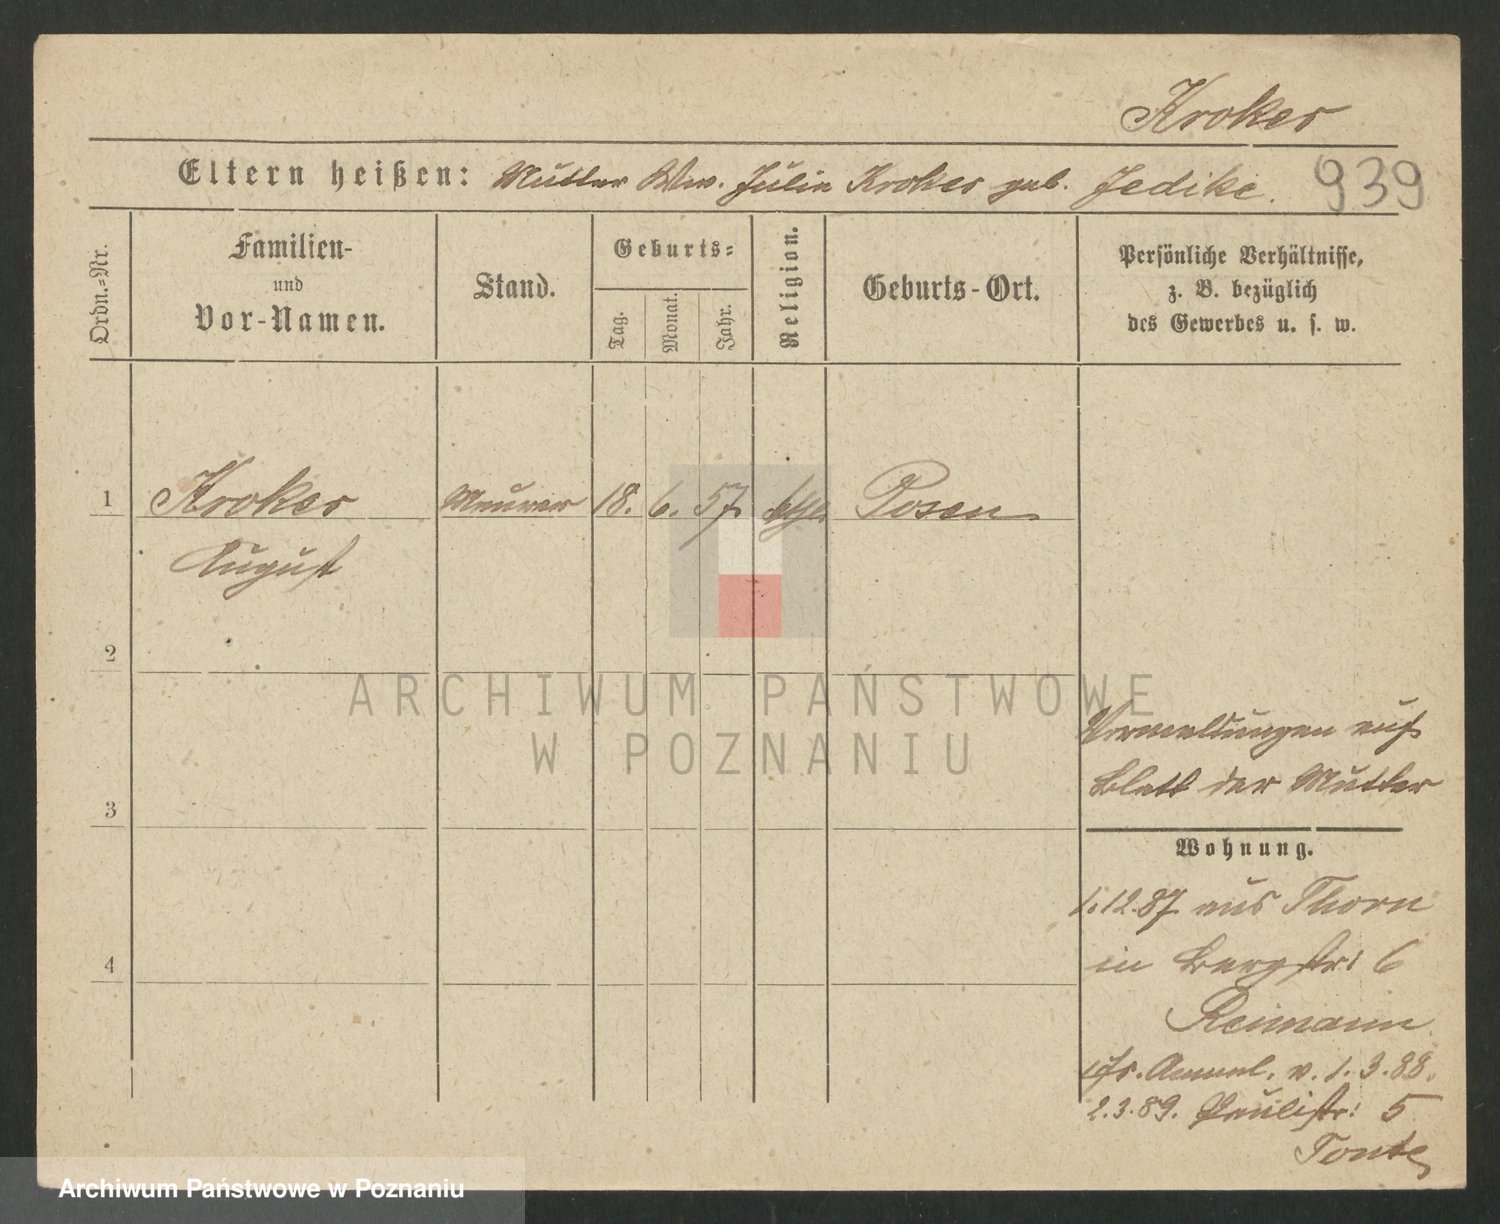 Kroker
Eltern heißen: Mutter Ww. Julie Kroker geb. Jedike.
939
Ordn.-Nr.
Familien-
und
Vor-Namen.
Stand.
Geburts-
Tag.
Monat.
Jahr.
Religion.
Geburts-Ort.
Persönliche Verhältnisse,
z. B. bezüglich
des Gewerbes u. s. w.
1 Kroker Maurer 18. 6. 57 kth. Posen
August
2
ARCHIWUM PAŃSTWOWE
W POZNANIU
Vermeldungen auf
Blatt der Mutter
3
Wohnung.
1.12.87 aus Thorn
4
in Bergstr: 6
Reimann
v. 1. 3. 88.
2.3.89. Paulistr: 5
Archiwum Państwowe w Poznaniu